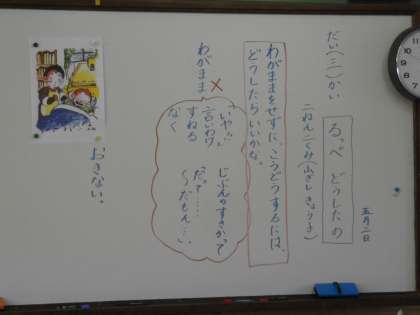 五月二日
だい(三)かい
るっぺ どうしたの
二ねん二くみ
わがままをせずに、こうどうするには、
どうしたらいいかな。
わがまま
いや…
じぶんのすきかって
言いわけ
だって……
すねる
〜だもん…、
なく
おきない。